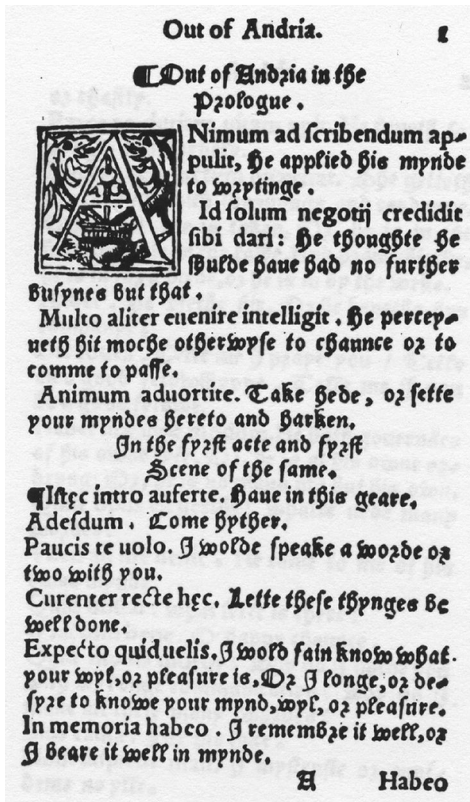 Out of Andria. 1
¶Out of Andria in the
Prologue.
ANimum ad scribendum ap-
pulit, He applied his mynde
to wryting̃e
Id solum negotij credidit
sibi dari: He thoughte he
shulde haue had no further
busynes but that.
Multo aliter euenire intelligit. He percey-
ueth hit moche otherwyse to chaunce or to
comme to passe.
Animum aduortite. Take hede, or sette
your myndes hereto and harken.
In the fyrst acte and fyrst
Scene of the same.
¶Istęc intro auferte. Haue in this geare.
Adesdum. Come hyther.
Paucis te uolo. I wolde speake a worde or
two with you.
Curenter recte hęc. Lette these thynges be
well done.
Expecto quid uelis. I wold fain know what
your wyl, or pleasure is, Or I longe, or de-
syre to knowe your mynd, wyl, or pleasure.
In memoria habeo. I remembre it well, or
I beare it well in mynde.
A Habeo